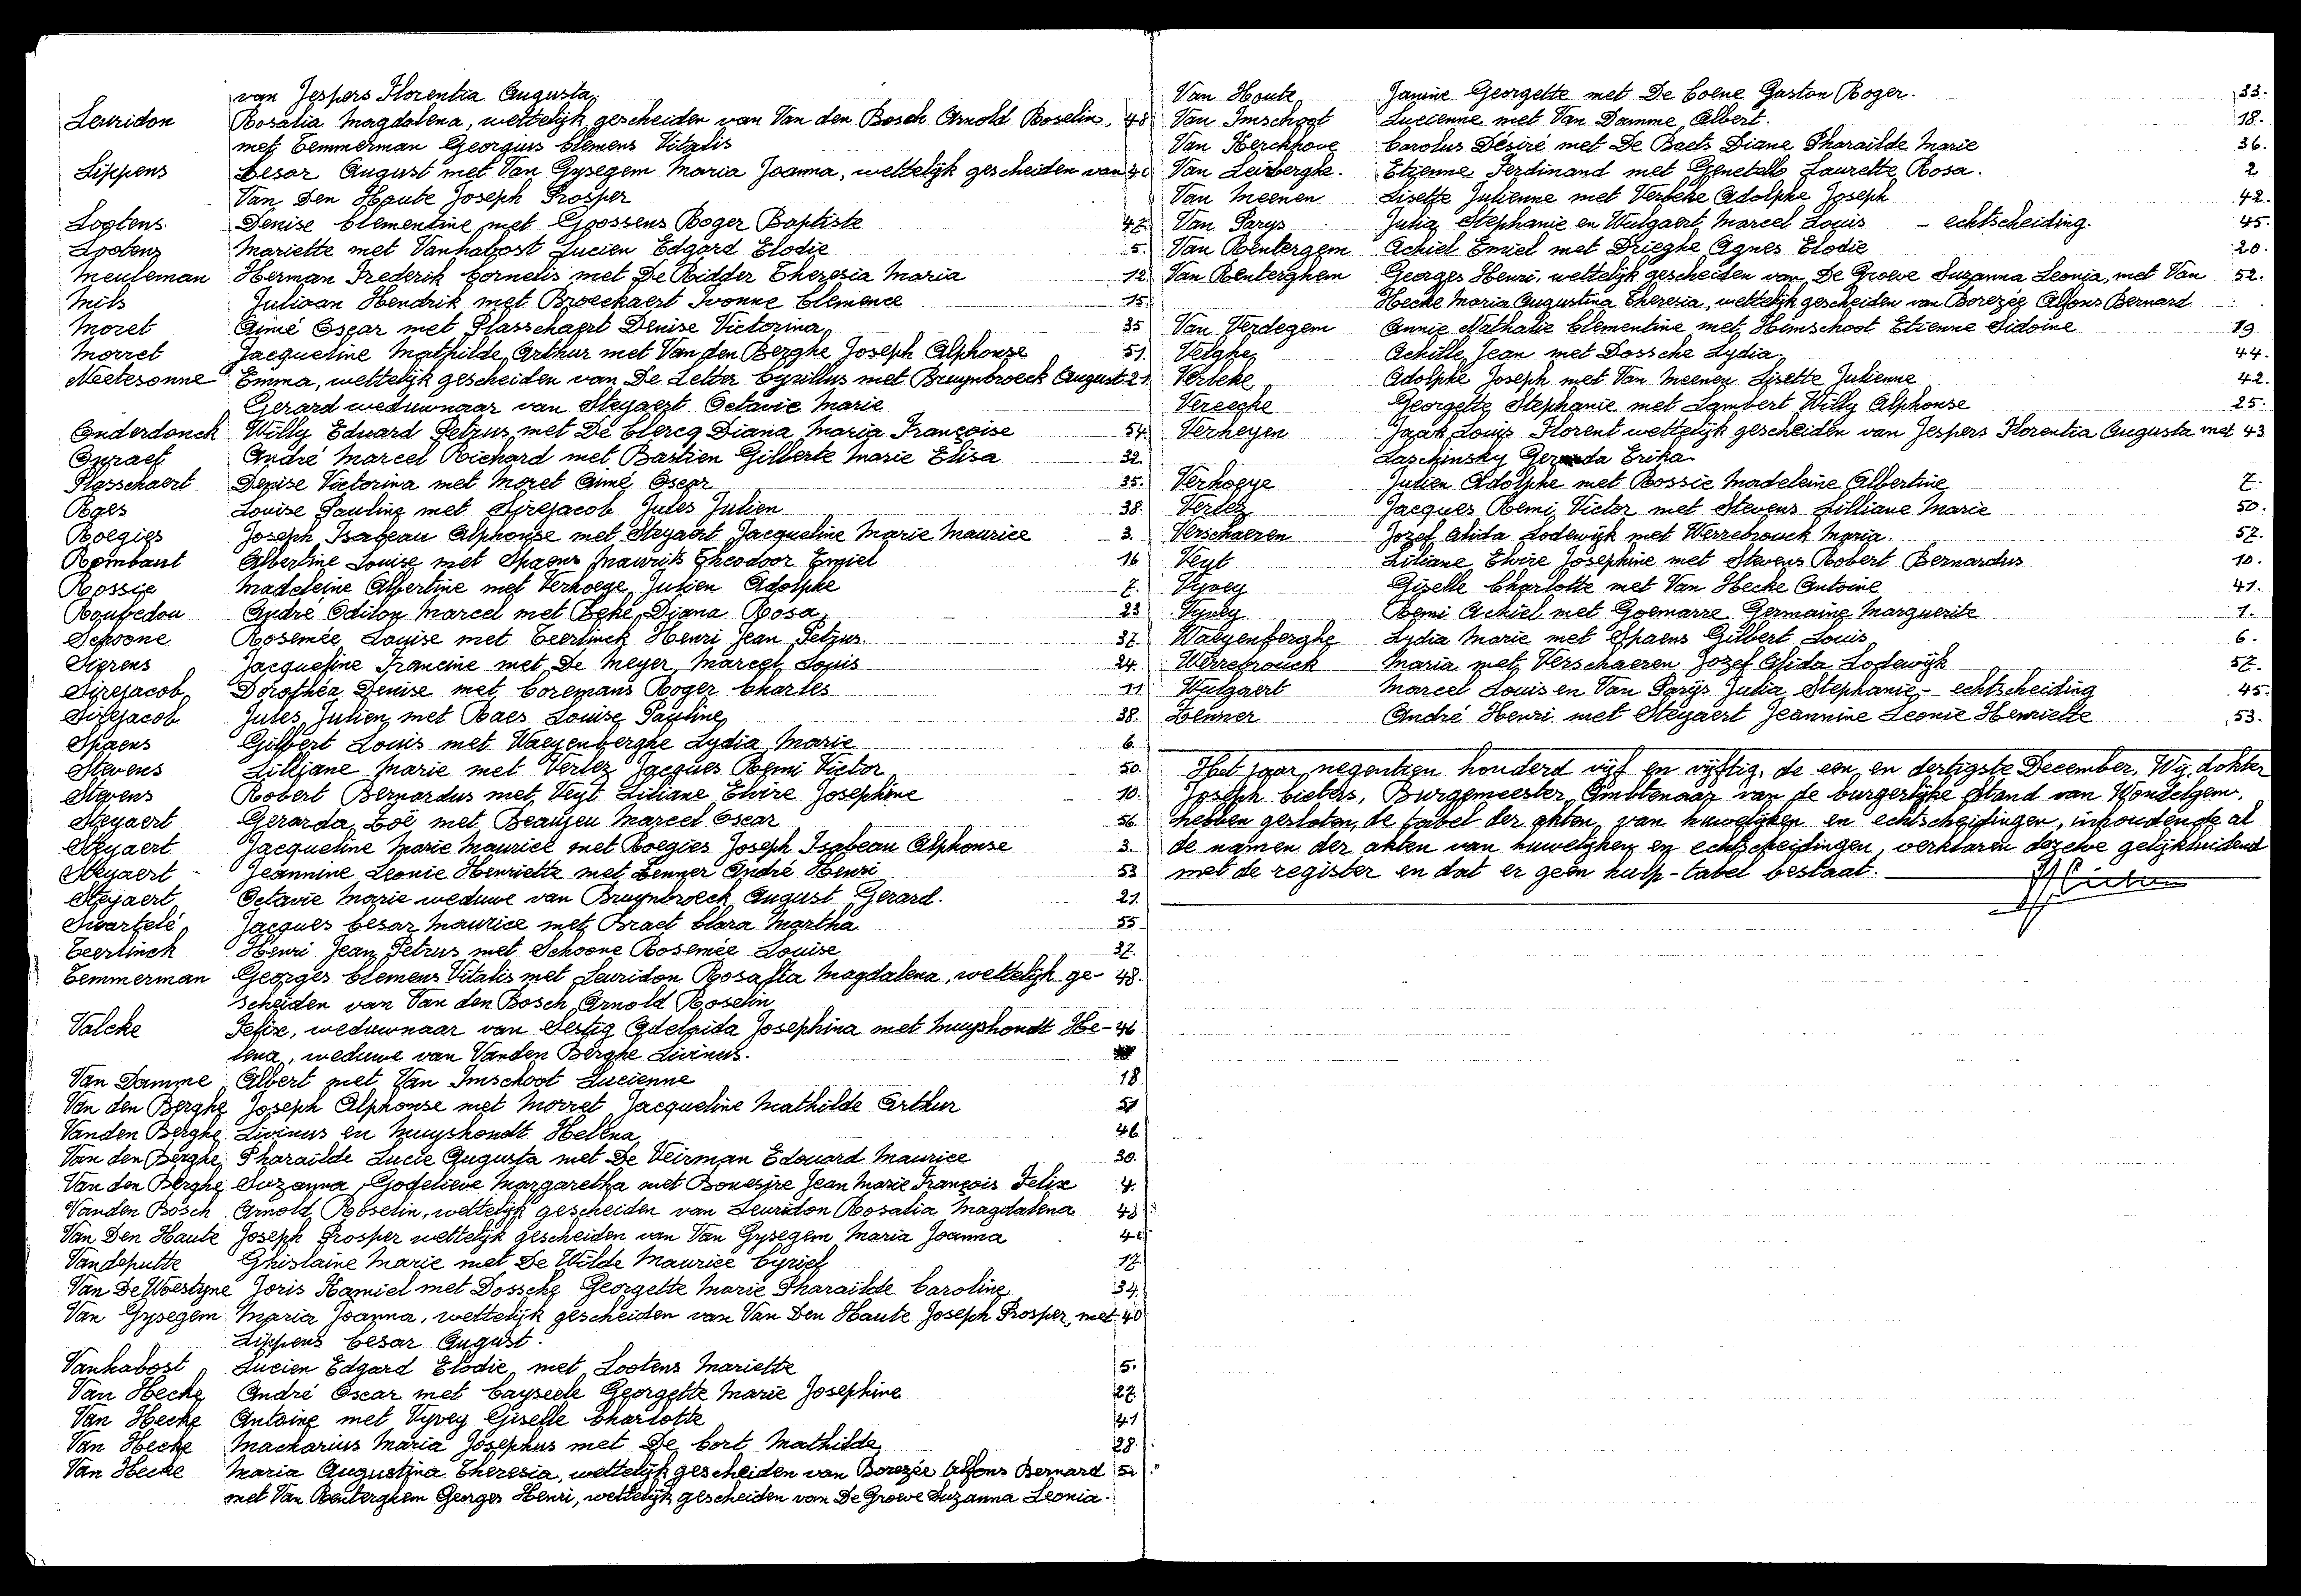 van Jespers Florentia Augusta.
Leuridon Rosalia Magdalena, wettelijk gescheiden van Van den Bosch Arnold Roselin, 48
met Temmerman Georgius Clemens Vitalis
Lippens Cesar August met Van Gysegem Maria Joanna, wettelijk gescheiden van 40
Van Den Haute Joseph Prosper
Lootens Denise Clementine met Goossens Roger Baptiste 47.
Lootens Mariette met Vanhabost Lucien Edgard Elodie 5.
Meuleman Herman Frederik Cornelis met De Ridder Theresia Maria 12
Mils Juliaan Hendrik met Broeckaert Ivonne Clemence 15.
Moret Aimé Oscar met Plasschaert Denise Victorina 35
Morret Jacqueline Mathilde Arthur met Van den Berghe Joseph Alphonse 51.
Neetesonne Emma, wettelijk gescheiden van De Letter Cyrillus met Bruynbroeck August 21.
Gerard weduwnaar van Steyaert Octavie Marie
Onderdonck Willy Eduard Petrus met De Clercq Diana Maria Françoise 54.
Onraet André Marcel Richard met Bastien Gilberte Marie Elisa 32.
Plasschaert Denise Victorina met Moret Aimé Oscar 35.
Raes Louise Pauline met Sirejacob Jules Julien 38.
Roegies Joseph Isabeau Alphonse met Steyaert Jacqueline Marie Maurice 3.
Rombaut Albertine Louise met Spaens Maurits Theodoor Emiel 16
Rossie Madeleine Albertine met Verhoeye Julien Adolphe 7.
Roubedou André Odilon Marcel met Beke Diana Rosa 23
Schoone Rosemée Louise met Teerlinck Henri Jean Petrus. 37.
Sierens Jacqueline Francine met De Meyer Marcel Louis 24.
Sirejacob Dorothéa Denise met Coremans Roger Charles 11
Sirejacob Jules Julien met Raes Louise Pauline 38.
Spaens Gilbert Louis met Waeyenberghe Lydia Marie 6.
Stevens Lilliane Marie met Verlez Jacques Remi Victor 50.
Stevens Robert Bernardus met Veyt Liliane Elvire Josephine 10.
Steyaert Gerarda Zoë met Beaujeu Marcel Oscar 56.
Steyaert Jacqueline Marie Maurice met Roegies Joseph Isabeau Alphonse 3.
Steyaert Jeannine Leonie Henriette met Zenner André Henri 53
Steyaert Octavie Marie weduwe van Bruynbroeck August Gerard. 21.
Swartelé Jacques Cesar Maurice met Praet Clara Martha 55
Teerlinck Henri Jean Petrus met Schoone Rosemée Louise 37.
Temmerman Georges Clemens Vitalis met Leuridon Rosalia Magdalena, wettelijk ge- 48.
scheiden van Van den Bosch Arnold Roselin
Valcke Felix, weduwnaar van Sestig Adelaida Josephina met Muyshondt He- 46
lena, weduwe van Vanden Berghe Livinus.
Van Damme Albert met Van Imschoot Lucienne 18
Van den Berghe Joseph Alphonse met Morret Jacqueline Mathilde Arthur 51
Vanden Berghe Livinus en Muyshondt Helena 46
Van den Berghe Pharaïlde Lucie Augusta met De Veirman Edouard Maurice 30.
Van den Berghe Suzanna Godelieve Margaretha met Bonesire Jean Marie François Felix 4.
Vanden Bosch Arnold Roselin, wettelijk gescheiden van Leuridon Rosalia Magdalena 48
Van Den Haute Joseph Prosper wettelijk gescheiden van Van Gysegem Maria Joanna 40
Vandeputte Ghislaine Marie met De Wilde Maurice Cyriel 17.
Van De Woestyne Joris Kamiel met Dossche Georgette Marie Pharaïlde Caroline 34.
Van Gysegem Maria Joanna, wettelijk gescheiden van Van Den Haute Joseph Prosper, met 40
Lippens Cesar August.
Vanhabost Lucien Edgard Elodie met Lootens Mariette 5.
Van Hecke André Oscar met Cayseele Georgette Marie Josephine 27.
Van Hecke Antoine met Vyvey Giselle Charlotte 41
Van Hecke Mackarius Maria Josephus met De Cort Mathilde 28.
Van Hecke Maria Augustina Theresia, wettelijk gescheiden van Borezée Alfons Bernard 52
met Van Renterghem Georges Henri, wettelijk gescheiden van De Groeve Suzanna Leonia.
Van Houte Janine Georgette met De Coene Gaston Roger. 33.
Van Imschoot Lucienne met Van Damme Albert. 18.
Van Kerckhove Carolus Désiré met De Baets Diane Pharaïlde Marie 36.
Van Leirberghe. Etienne Ferdinand met Genetello Laurette Rosa. 2
Van Meenen Lisette Julienne met Verbeke Adolphe Joseph 42.
Van Parys Julia Stephanie en Wulgaert Marcel Louis - echtscheiding. 45.
Van Rentergem Achiel Emiel met Drieghe Agnes Elodie 20.
Van Renterghem Georges Henri, wettelijk gescheiden van De Groeve Suzanna Leonia, met Van 52.
Hecke Maria Augustina Theresia, wettelijk gescheiden van Borezée Alfons Bernard
Van Verdegem Annie Nathalie Clementine met Himschoot Etienne Sidoine 19
Velghe Achille Jean met Dossche Lydia 44.
Verbeke Adolphe Joseph met Van Meenen Lisette Julienne 42.
Vereecke Georgette Stephanie met Lambert Willy Alphonse 25.
Verheyen Jaak Louis Florent wettelijk gescheiden van Jespers Florentia Augusta met 43
Laschinsky Gerda Erika.
Verhoeye Julien Adolphe met Rossie Madeleine Albertine 7.
Verlez Jacques Remi Victor met Stevens Lilliane Marie 50.
Verschaeren Jozef Alida Lodewijk met Werrebrouck Maria. 57.
Veyt Liliane Elvire Josephine met Stevens Robert Bernardus 10.
Vyvey Giselle Charlotte met Van Hecke Antoine 41.
Vyvey Remi Achiel met Goemarre Germaine Marguerite 1.
Waeyenberghe Lydia Marie met Spaens Gilbert Louis 6.
Werrebrouck Maria met Verschaeren Jozef Alida Lodewijk 57.
Wulgaert Marcel Louis en Van Parijs Julia Stephanie, - echtscheiding 45.
Zenner André Henri met Steyaert Jeannine Leonie Henriette 53.
Het jaar negentien honderd vijf en vijftig, de een en dertigste December. Wij, dokter
Joseph Cieters, Burgemeester Ambtenaar van de burgerlijke Stand van Wondelgem,
hebben gesloten, de tabel der akten van huwelijken en echtscheidingen, inhoudende al
de namen der akten van huwelijken en echtscheidingen, verklaren dezelve gelijkluidend
met de register en dat er geen hulp-tabel bestaat.